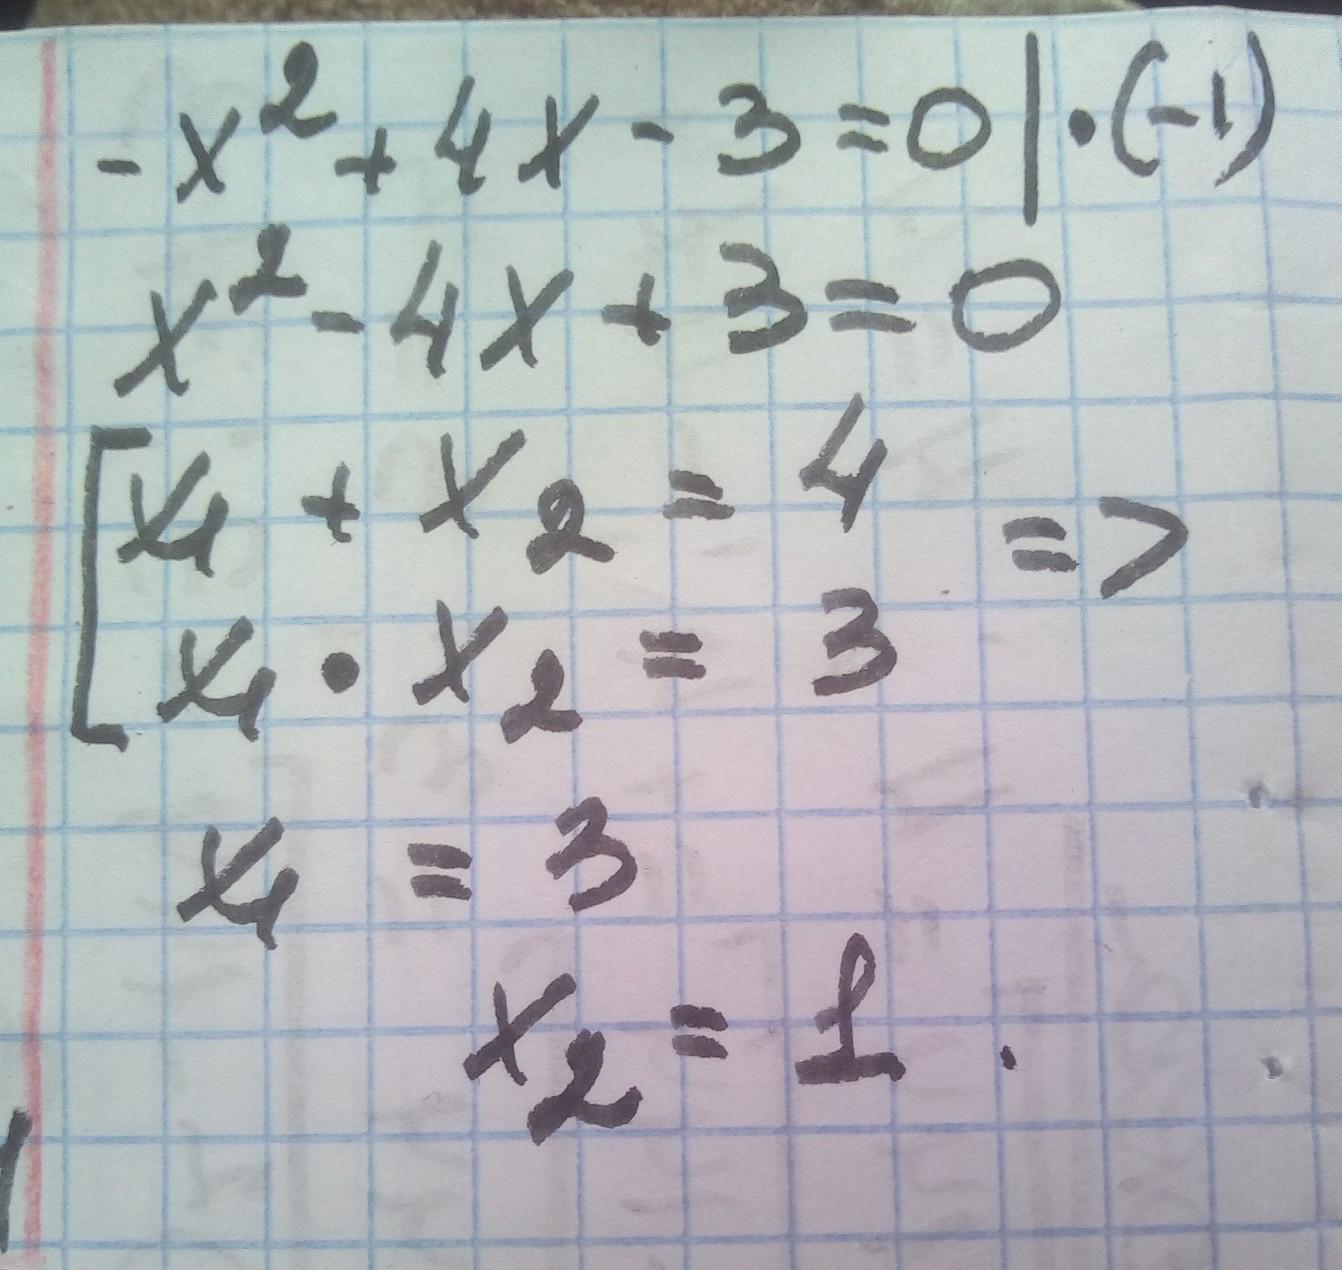 -x² + 4x - 3 = 0 | · (-1)
x² - 4x + 3 = 0
[ x₁ + x₂ = 4 =>
x₁ · x₂ = 3
x₁ = 3
x₂ = 1.